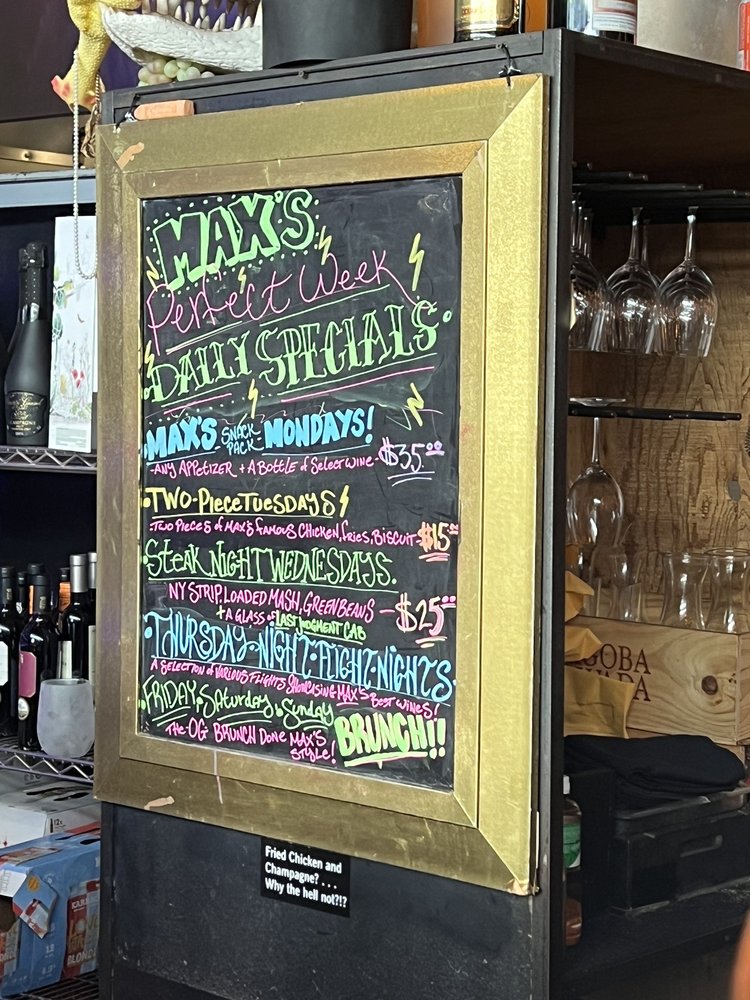 MAX'S
Perfect Week
DAILY SPECIALS
MAX'S SNACK PACK MONDAYS!
-ANY APPETIZER + A BOTTLE of SELECT WINE - $35.00
TWO-PIECE TUESDAYS
-TWO PIECES of MAX'S FAMOUS CHICKEN, FRIES, BISCUIT - $15.00
STEAK NIGHT WEDNESDAYS.
NY STRIP, LOADED MASH, GREEN BEANS
+ A GLASS of LAST JUDGMENT CAB - $25.00
THURSDAY-NIGHT-FLIGHT-NIGHTS
A SELECTION of VARIOUS FLIGHTS SHOWCASING MAX'S BEST WINES!
FRIDAY, SATURDAY & SUNDAY
THE OG BRUNCH DONE MAX'S STYLE!
BRUNCH!!
Fried Chicken and
Champagne? . . .
Why the hell not?!?